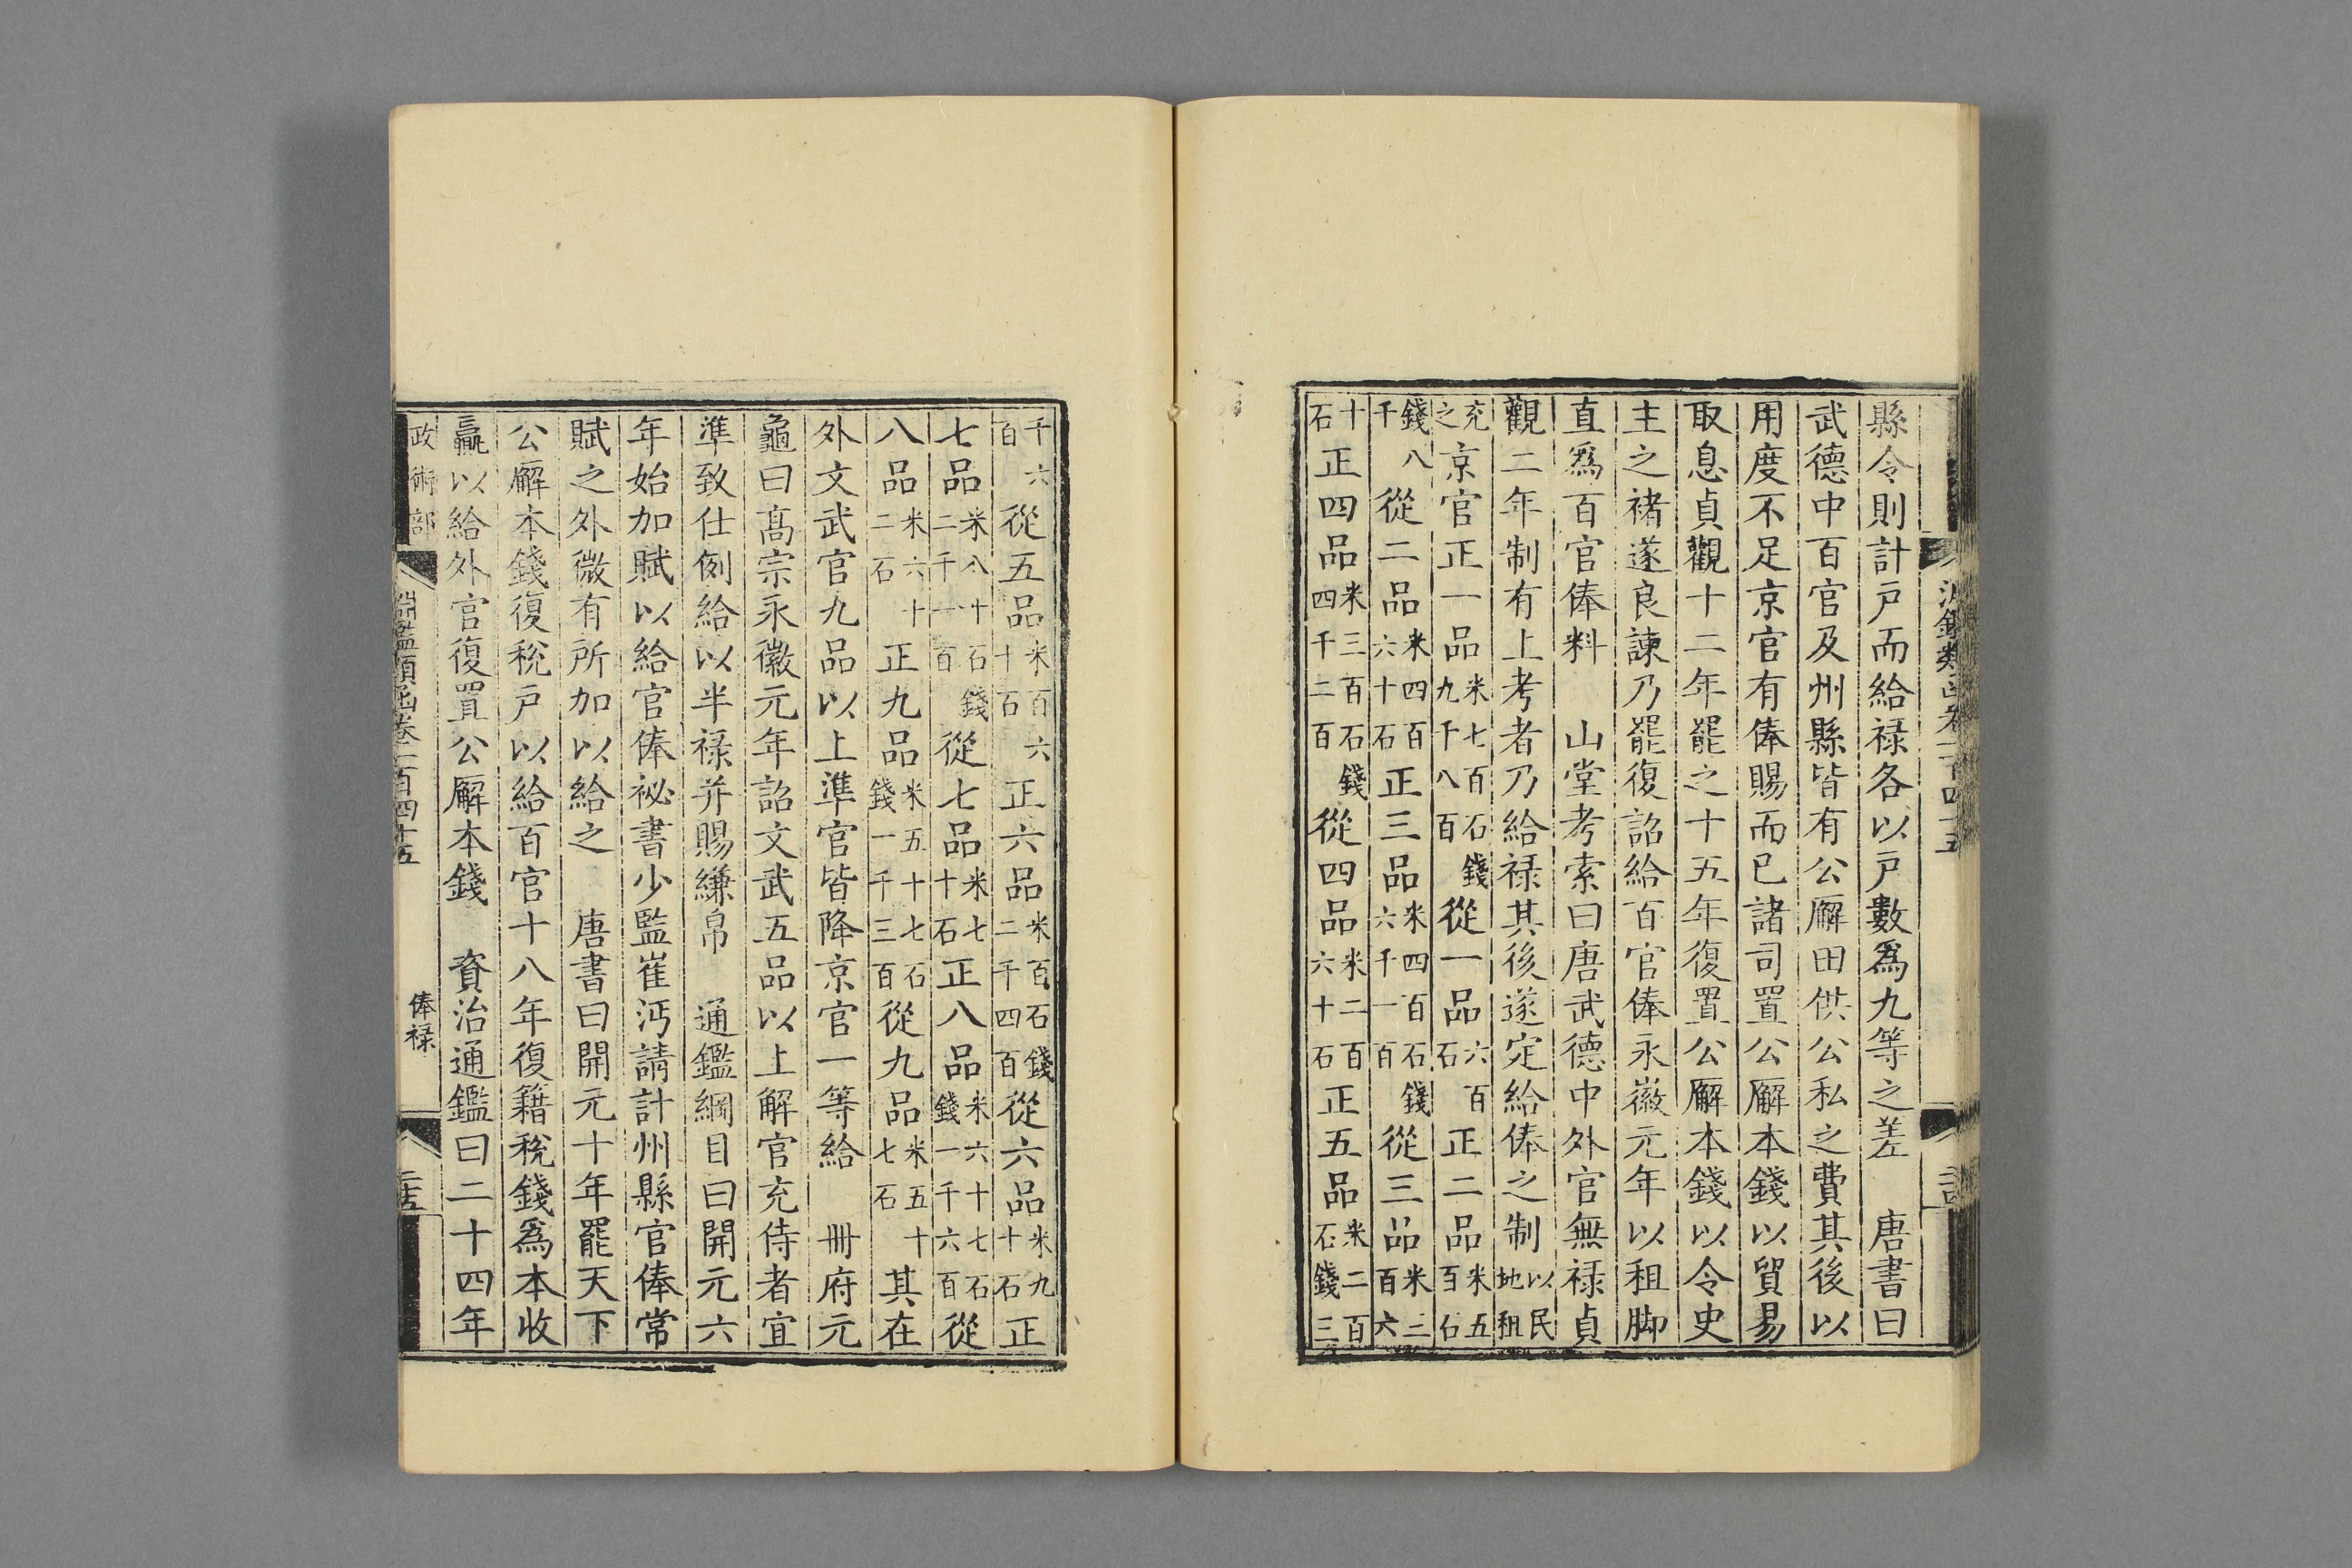 淵鑑類函卷一百四十五
縣令則計戸而給禄各以戸數爲九等之差　唐書曰
武德中百官及州縣皆有公廨田供公私之費其後以
用度不足京官有俸賜而已諸司置公廨本錢以貿易
取息貞觀十二年罷之十五年復置公廨本錢以令史
主之褚遂良諫乃罷復詔給百官俸永徽元年以租脚
直爲百官俸料　山堂考索曰唐武德中外官無禄貞
觀二年制有上考者乃給禄其後遂定給俸之制以民地租
充之京官正一品米七百石錢九千八百從一品米六百石正二品米五百石
錢八千從二品米四百六十石正三品米四百石錢六千一百從三品米三百六
十石正四品米三百石錢四千二百從四品米二百六十石正五品米二百石錢三
千六百從五品米百六十石正六品米百石錢二千四百從六品米九十石正
七品米八十石錢二千一百從七品米七十石正八品米六十七石錢一千六百從
八品米六十二石正九品米五十七石錢一千三百從九品米五十七石其在
外文武官九品以上準官皆降京官一等給　冊府元
龜曰髙宗永徽元年詔文武五品以上解官充侍者宜
準致仕例給以半禄并賜縑帛　通鑑綱目曰開元六
年始加賦以給官俸祕書少監崔沔請計州縣官俸常
賦之外微有所加以給之　唐書曰開元十年罷天下
公廨本錢復稅戸以給百官十八年復籍稅錢爲本收
贏以給外官復置公廨本錢　資治通鑑曰二十四年
政術部　淵鑑類函卷一百四十五　俸禄　二十五